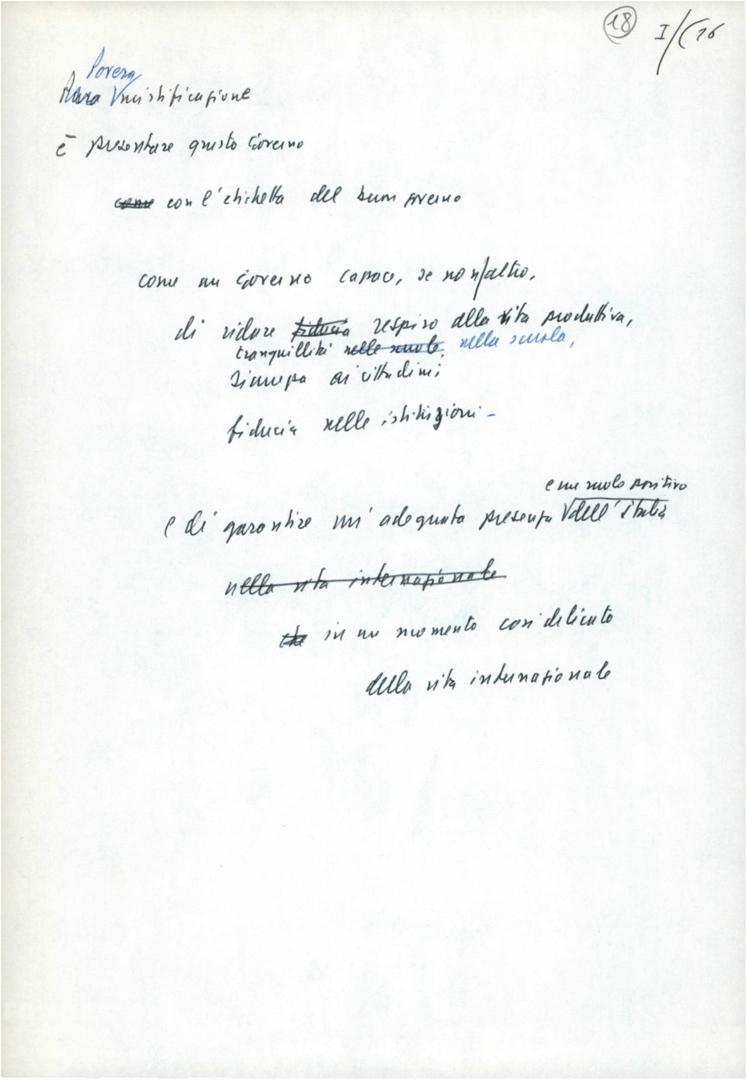 18 I/C 16
Povera
Pura mistificazione
è presentare questo Governo
come con l'etichetta del buon governo
come un Governo capace, se non/altro,
di ridare fiducia respiro alla vita produttiva,
tranquillità nelle scuole, nella scuola,
sicurezza ai cittadini
fiducia nelle istituzioni -
e un ruolo positivo
e di garantire un'adeguata presenza dell'Italia
nella vita internazionale
che in un momento così delicato
della vita internazionale